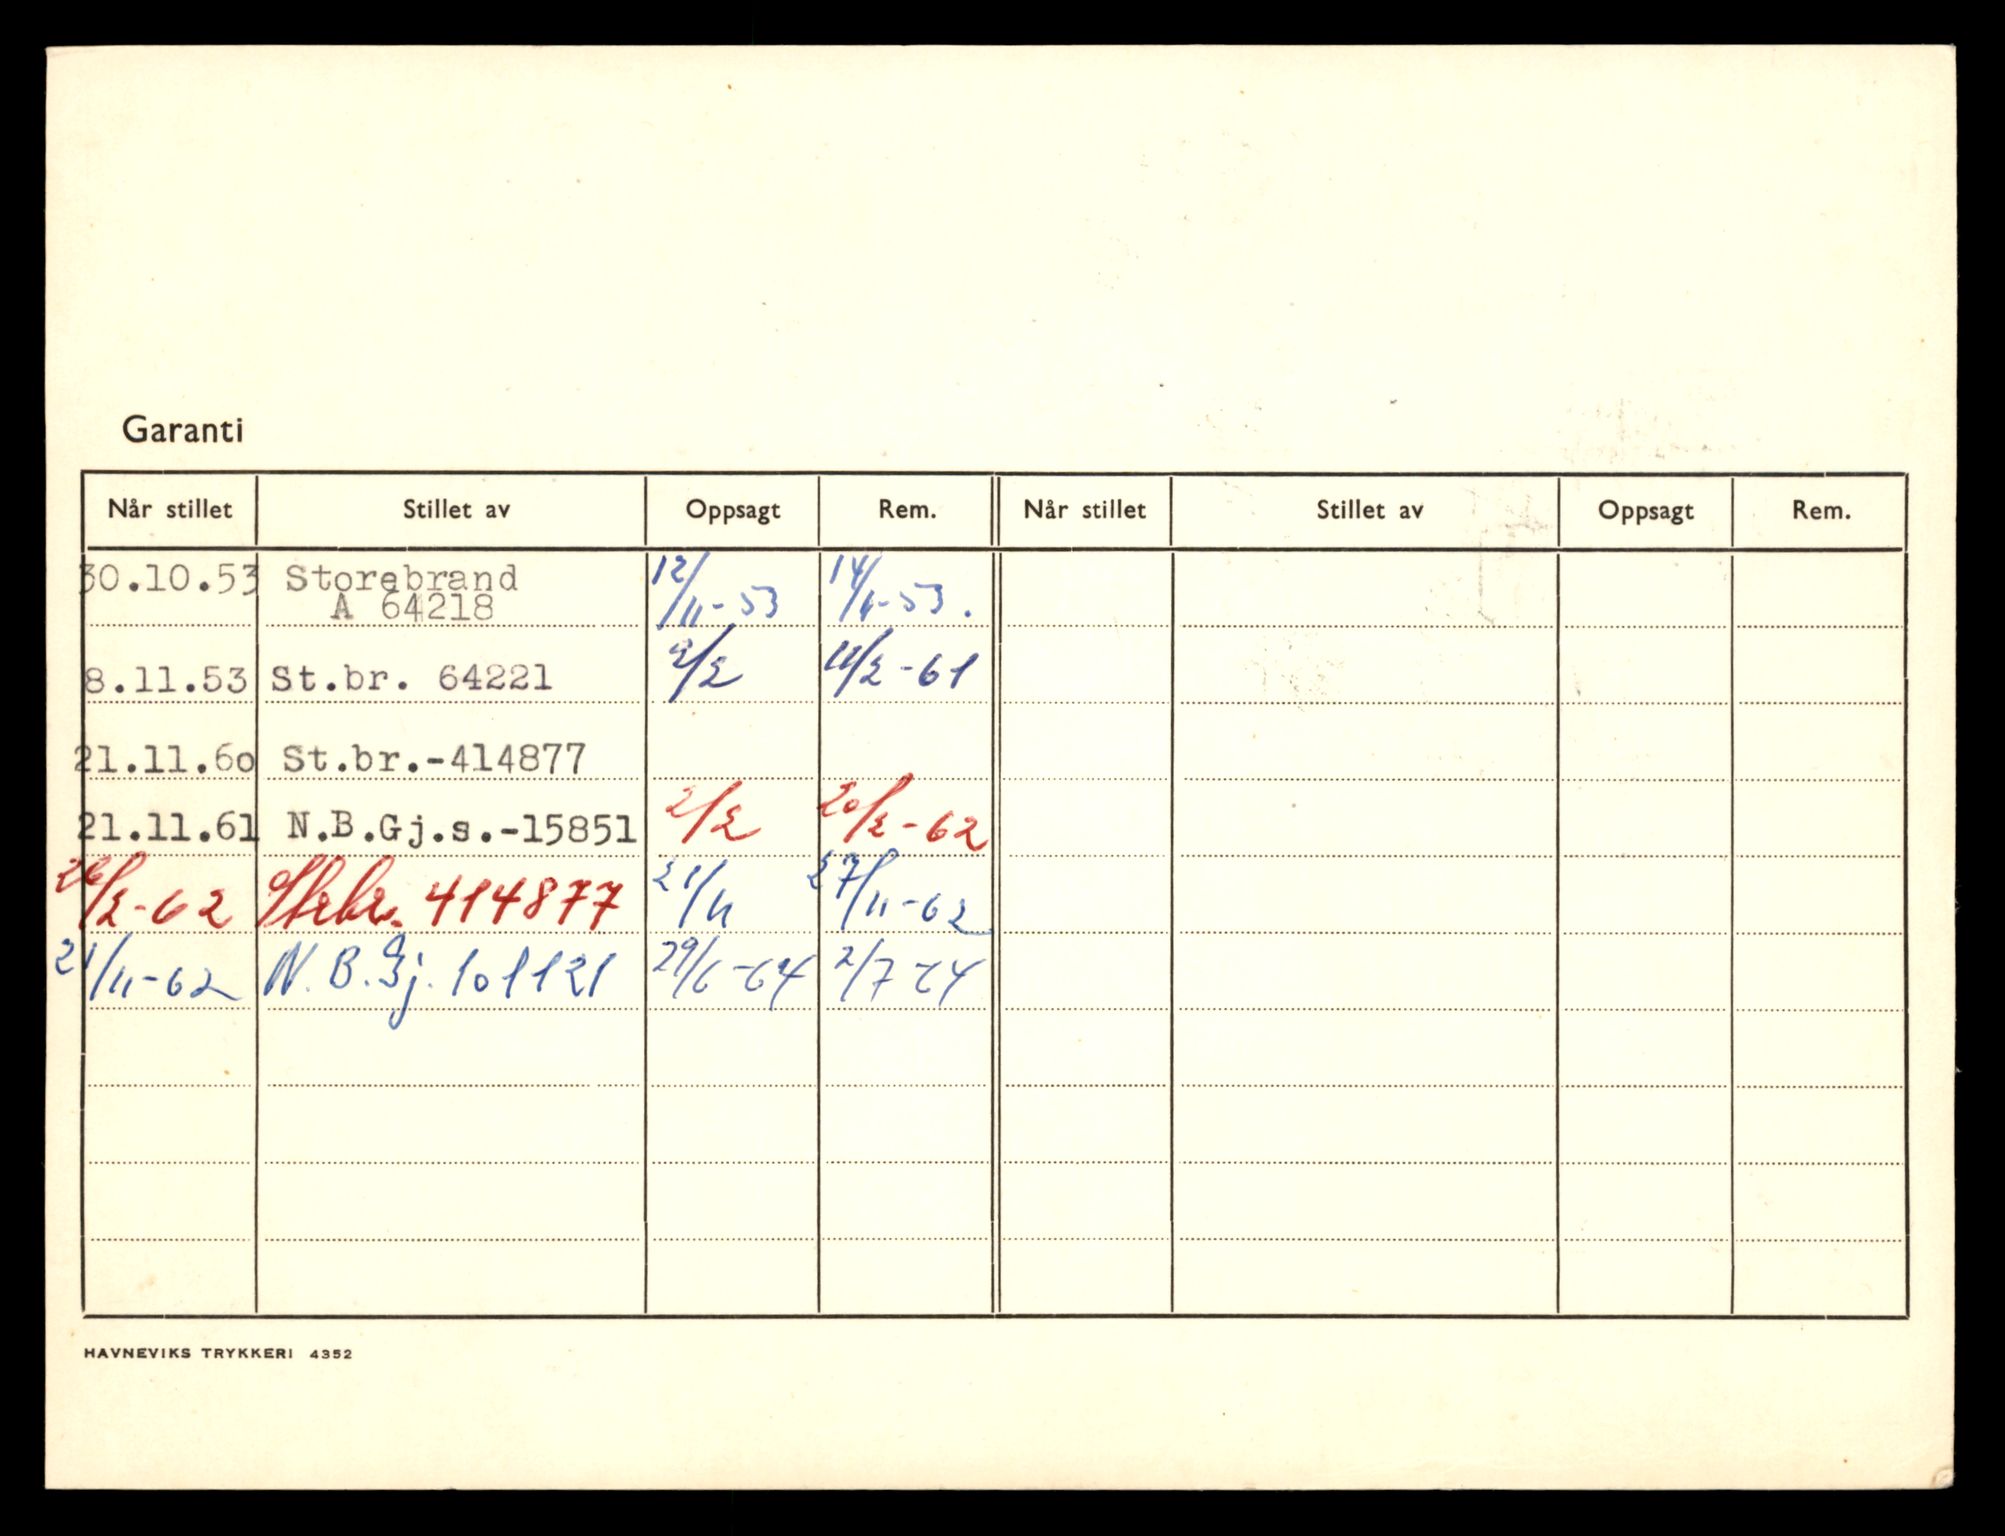 Garanti
Når stillet Stillet av Oppsagt Rem. Når stillet Stillet av Oppsagt Rem.
30.10.53 Storebrand 12/11-53 14/11-53.
A 64218
8.11.53 St.br. 64221 2/2 11/2-61
21.11.60 St.br.-414877
21.11.61 N.B.Gj.s.-15851 2/2 20/2-62
26/2-62 Stbr. 414877 21/11 27/11-62
21/11-62 N.B.Gj. 101121 29/6-64 2/7-64
HAVNEVIKS TRYKKERI 4352